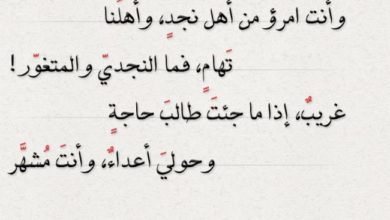 وأنت امرؤ من أهل نجدٍ، وأهلُنا
تَهامٍ، فما النجديّ والمتغوّر!
غريبٌ، إذا ما جئتَ طالبَ حاجةٍ
وحوليَ أعداءٌ، وأنتَ مُشهَّر